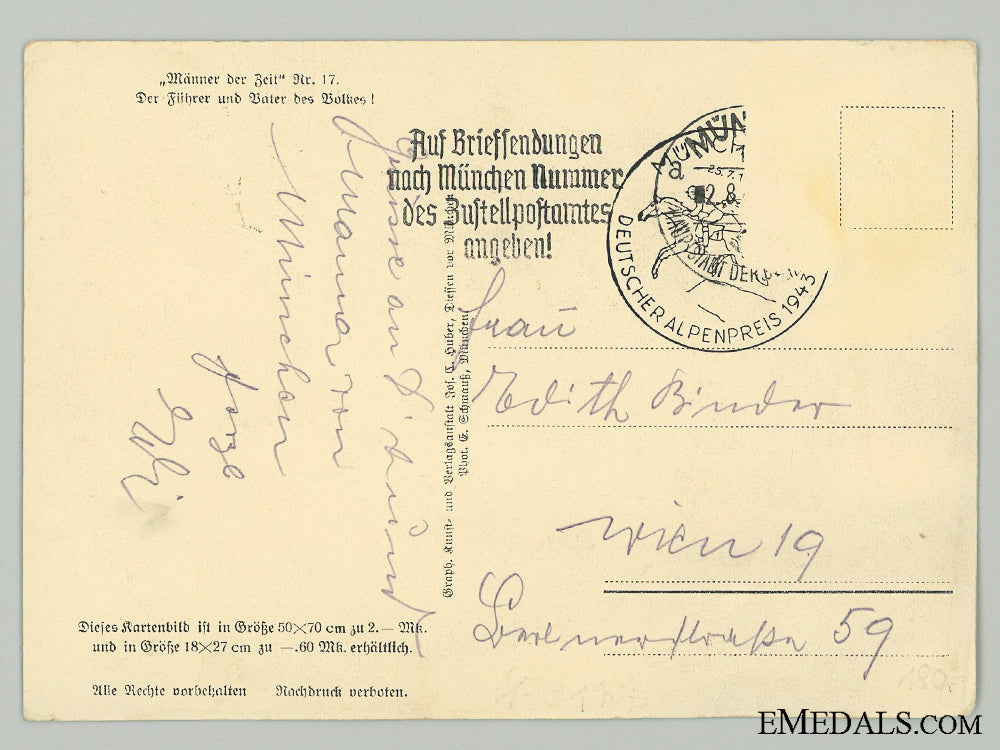 „Männer der Zeit“ Nr. 17.
Der Führer und Vater des Volkes!
Auf Briefsendungen
nach München Nummer
des Zustellpostamtes
angeben!
MÜN
MÜNCH
25.7.
a
2.8
HAUPTSTADT DER
DEUTSCHER ALPENPREIS 1943
Mama von
München
Graph. Kunst- und Verlagsanstalt Jos. C. Huber, Diessen vor München
Phot. E. Schmauß, München
Frau
Edith Binder
Wien 19
59
Dieses Kartenbild ist in Größe 50×70 cm zu 2.— Mk.
und in Größe 18×27 cm zu —.60 Mk. erhältlich.
Alle Rechte vorbehalten Nachdruck verboten.
180.-
EMEDALS.COM